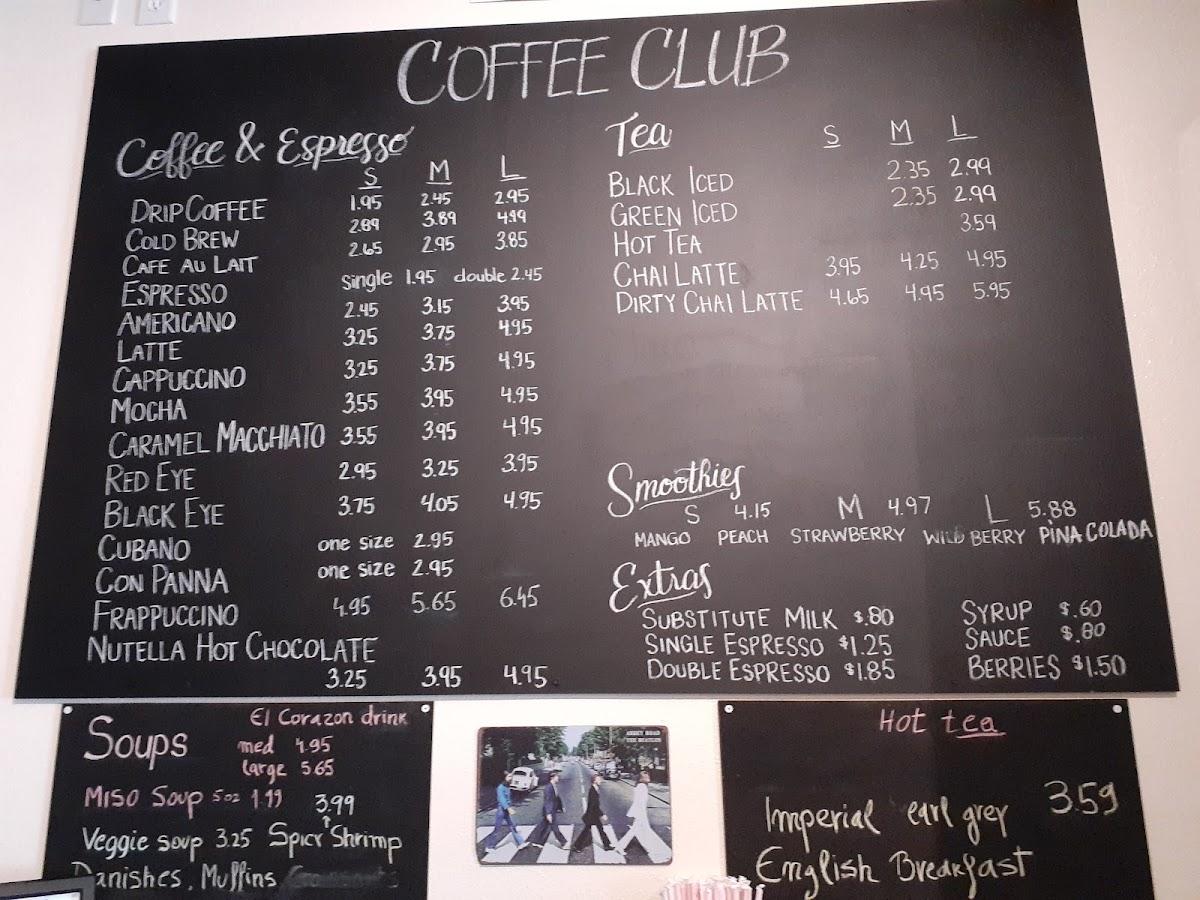 COFFEE CLUB
Coffee & Espresso
S M L
DRIP COFFEE 1.95 2.45 2.95
COLD BREW 2.89 3.89 4.99
CAFE AU LAIT 2.65 2.95 3.85
ESPRESSO single 1.95 double 2.45
AMERICANO 2.45 3.15 3.95
LATTE 3.25 3.75 4.95
CAPPUCCINO 3.25 3.75 4.95
MOCHA 3.55 3.95 4.95
CARAMEL MACCHIATO 3.55 3.95 4.95
RED EYE 2.95 3.25 3.95
BLACK EYE 3.75 4.05 4.95
CUBANO one size 2.95
CON PANNA one size 2.95
FRAPPUCCINO 4.95 5.65 6.45
NUTELLA HOT CHOCOLATE
3.25 3.95 4.95
Tea S M L
BLACK ICED 2.35 2.99
GREEN ICED 2.35 2.99
HOT TEA 3.59
CHAI LATTE 3.95 4.25 4.95
DIRTY CHAI LATTE 4.65 4.95 5.95
Smoothies
S 4.15 M 4.97 L 5.88
MANGO PEACH STRAWBERRY WILD BERRY PINA COLADA
Extras
SUBSTITUTE MILK $.80
SINGLE ESPRESSO $1.25
DOUBLE ESPRESSO $1.85
SYRUP $.60
SAUCE $.80
BERRIES $1.50
Soups
El Corazon drink
med 4.95
large 5.65
Miso Soup 5oz 1.99
3.99
Veggie soup 3.25 Spicy Shrimp
Danishes, Muffins
ABBEY ROAD
THE BEATLES
Hot tea
Imperial earl grey 3.59
English Breakfast